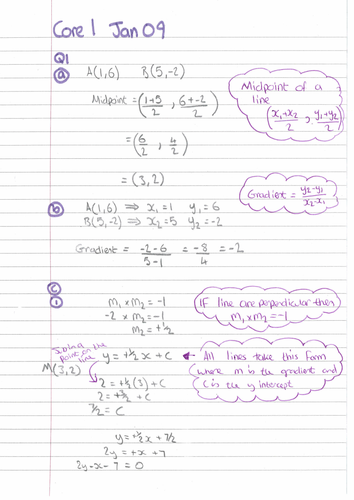 Core 1 Jan 09
Q1
(a) A(1,6) B(5,-2)
Midpoint = (1+5/2 , 6+-2/2)
= (6/2 , 4/2)
= (3,2)
Midpoint of a
line
(x₁+x₂/2 , y₁+y₂/2)
(b) A(1,6) ⇒ x₁=1 y₁=6
B(5,-2) ⇒ x₂=5 y₂=-2
Gradient = y₂-y₁/x₂-x₁
Gradient = -2-6/5-1 = -8/4 = -2
(c)
(i) m₁ × m₂ = -1
-2 × m₂ = -1
m₂ = +½
If line are perpendicular then
m₁ × m₂ = -1
Sub in a
point on the
line
M(3,2)
y = +½x + c
← All lines take this form
where m is the gradient and
c is the y intercept
2 = +½(3) + c
2 = +3/2 + c
7/2 = c
y = +½x + 7/2
2y = +x + 7
2y - x - 7 = 0